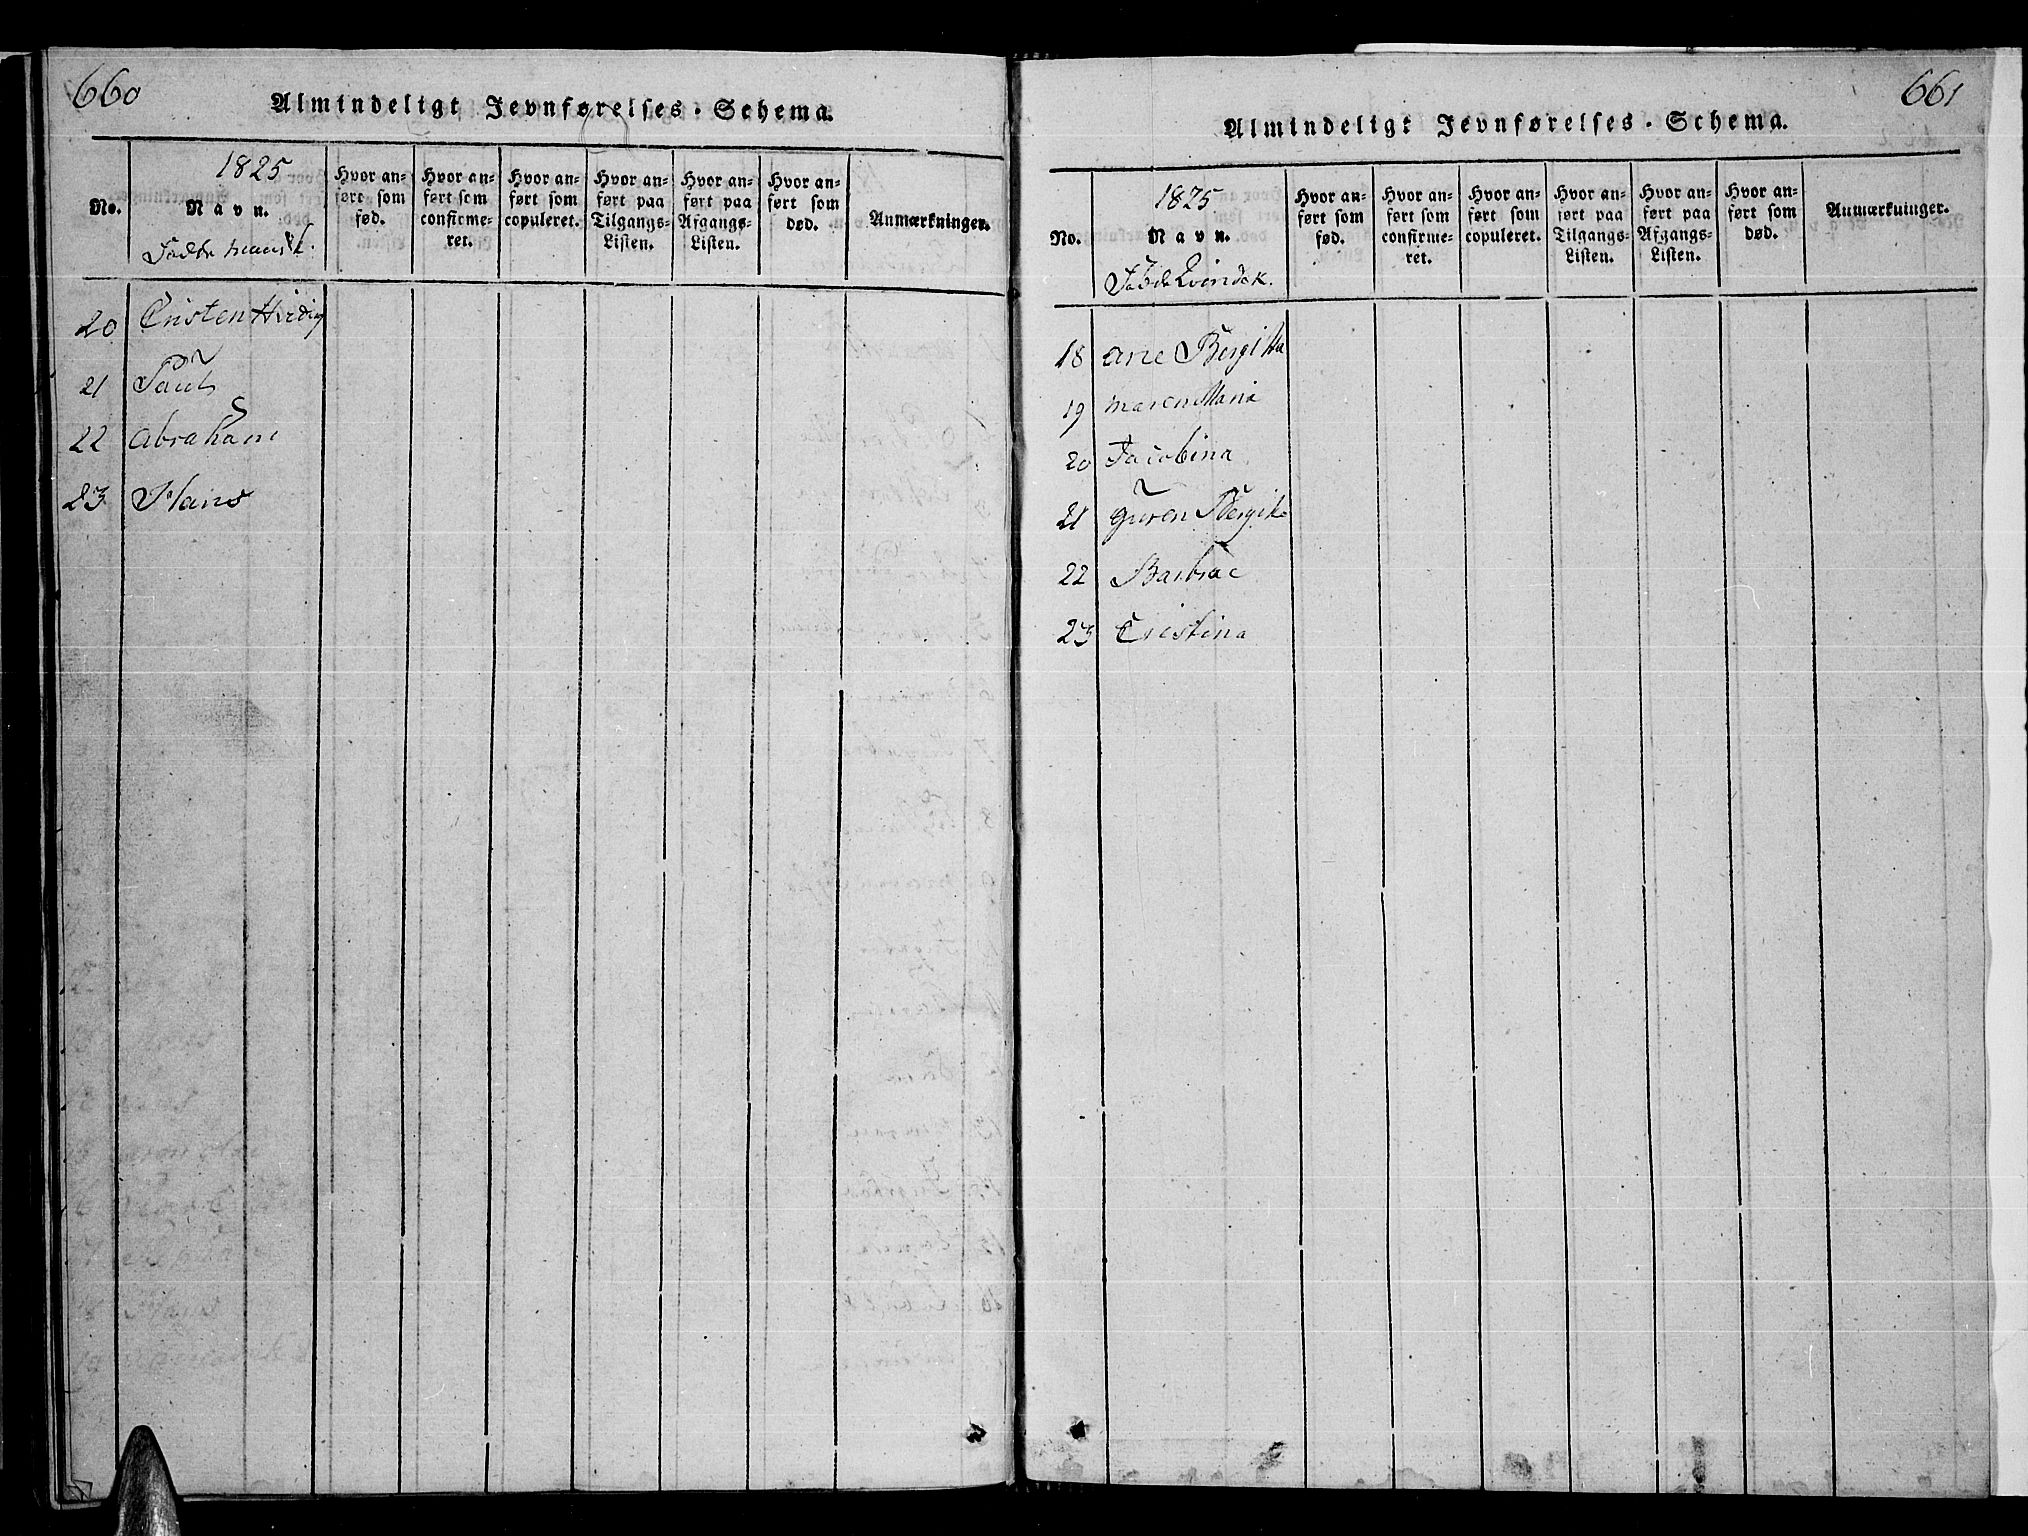 660
Almindeligt Jevnførelses-Schema.
No.
1825
Navn.
Født mandk.
Hvor an-
ført som
fød.
Hvor an-
ført som
confirme-
ret.
Hvor an-
ført som
copuleret.
Hvor an-
ført paa
Tilgangs-
Listen.
Hvor an-
ført paa
Afgangs-
Listen.
Hvor an-
ført som
død.
Anmærkninger.
20 Cristen
21 Paul
22 Abraham
23 Hans
661
Almindeligt Jevnførelses-Schema.
No.
1825
Navn.
Føde Qvindek.
Hvor an-
ført som
fød.
Hvor an-
ført som
confirme-
ret.
Hvor an-
ført som
copuleret.
Hvor an-
ført paa
Tilgangs-
Listen.
Hvor an-
ført paa
Afgangs-
Listen.
Hvor an-
ført som
død.
Anmærkninger.
18 ane Bergitta
19 maren Maria
20 Jacobina
21 guren Bergita
22 Barbrae
23 Cristina